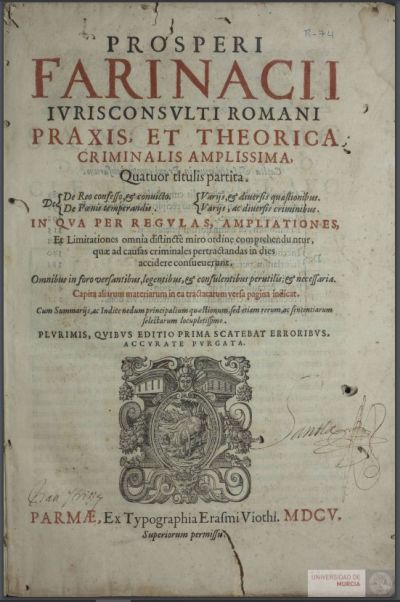 R-74
PROSPERI
FARINACII
IVRISCONSVLTI ROMANI
PRAXIS, ET THEORICA
CRIMINALIS AMPLISSIMA,
Quatuor titulis partita.
De De Reo confesso, & convicto. Varijs, & diversis quæstionibus.
De Pœnis temperandis. Varijs, ac diversis criminibus.
IN QVA PER REGVLAS, AMPLIATIONES,
Et Limitationes omnia distinctè miro ordine comprehenduntur,
quæ ad causas criminales pertractandas in dies
accidere consueuerunt.
Omnibus in foro versantibus, legentibus, & consulentibus perutilis, & necessaria.
Capita aliarum materiarum in ea tractatarum versa pagina indicat.
Cum Summarijs, ac Indice nedum principalium quæstionum, sed etiam rerum, ac sententiarum
selectarum locupletissimo.
PLVRIMIS, QVIBVS EDITIO PRIMA SCATEBAT ERRORIBVS,
ACCVRATE PVRGATA.
PARMÆ, Ex Typographia Erasmi Viothi. MDCV.
Superiorum permissu.
UNIVERSIDAD DE
MURCIA